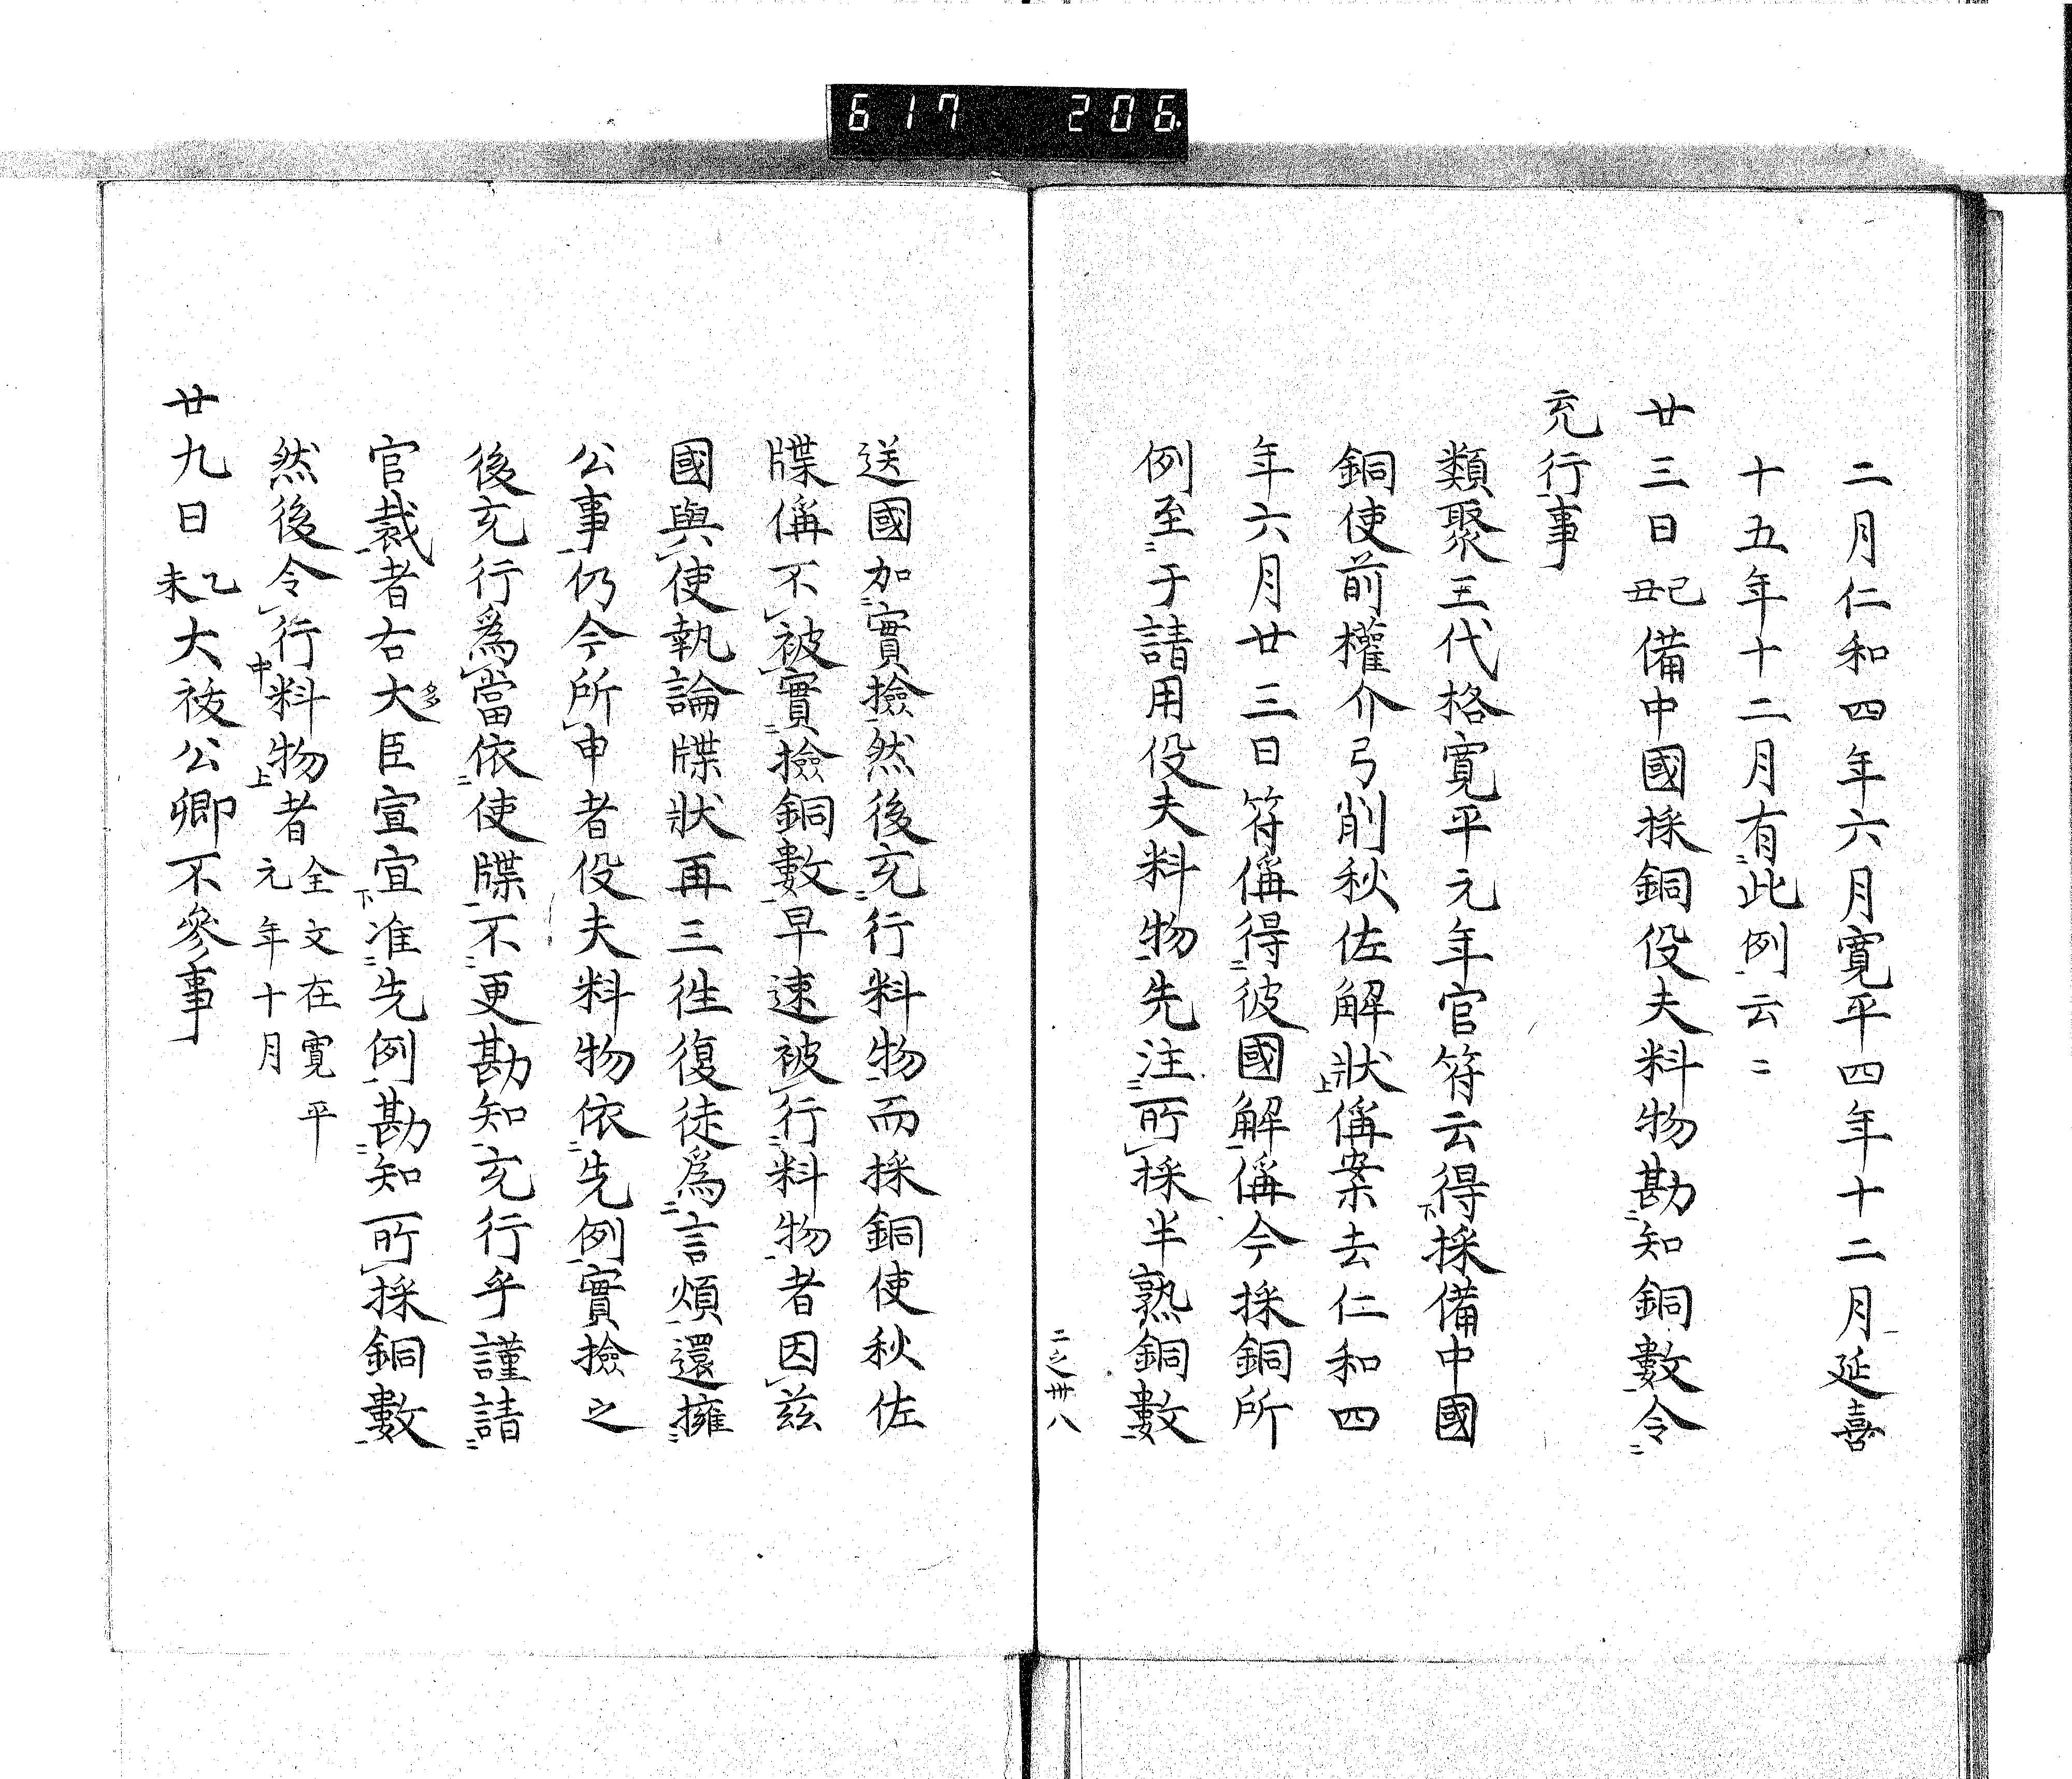 617 206
二月仁和四年六月寛平四年十二月延喜
十五年十二月有此例云々
廿三日己丑備中國採銅役夫料物勘知銅數令
充行事
類聚三代格寛平元年官符云得採備中國
銅使前權介弓削秋佐解狀偁案去仁和四
年六月廿三日符偁得彼國解偁今採銅所
例至于請用役夫料物先注所採半熟銅數
二之卅八
送國加實撿然後充行料物而採銅使秋佐
牒偁不被實撿銅數早速被行料物者因茲
國與使執論牒狀再三徃復徒爲言煩還擁
公事仍今所申者役夫料物依先例實撿之
後充行爲當依使牒不更勘知充行乎謹請
官裁者右大臣宣宜准先例勘知所採銅數
多
然後令行料物者全文在寛平元年十月
廿九日乙未大祓公卿不參事